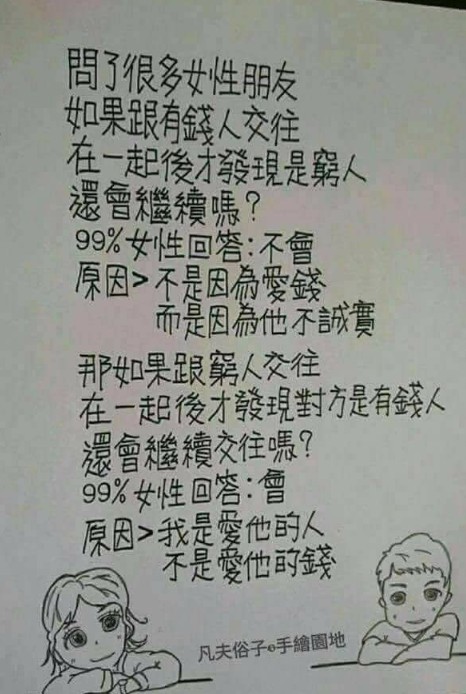 問了很多女性朋友
如果跟有錢人交往
在一起後才發現是窮人
還會繼續嗎?
99%女性回答:不會
原因>不是因為愛錢
而是因為他不誠實
那如果跟窮人交往
在一起後才發現對方是有錢人
還會繼續交往嗎?
99%女性回答:會
原因>我是愛他的人
不是愛他的錢
凡夫俗子の手繪園地